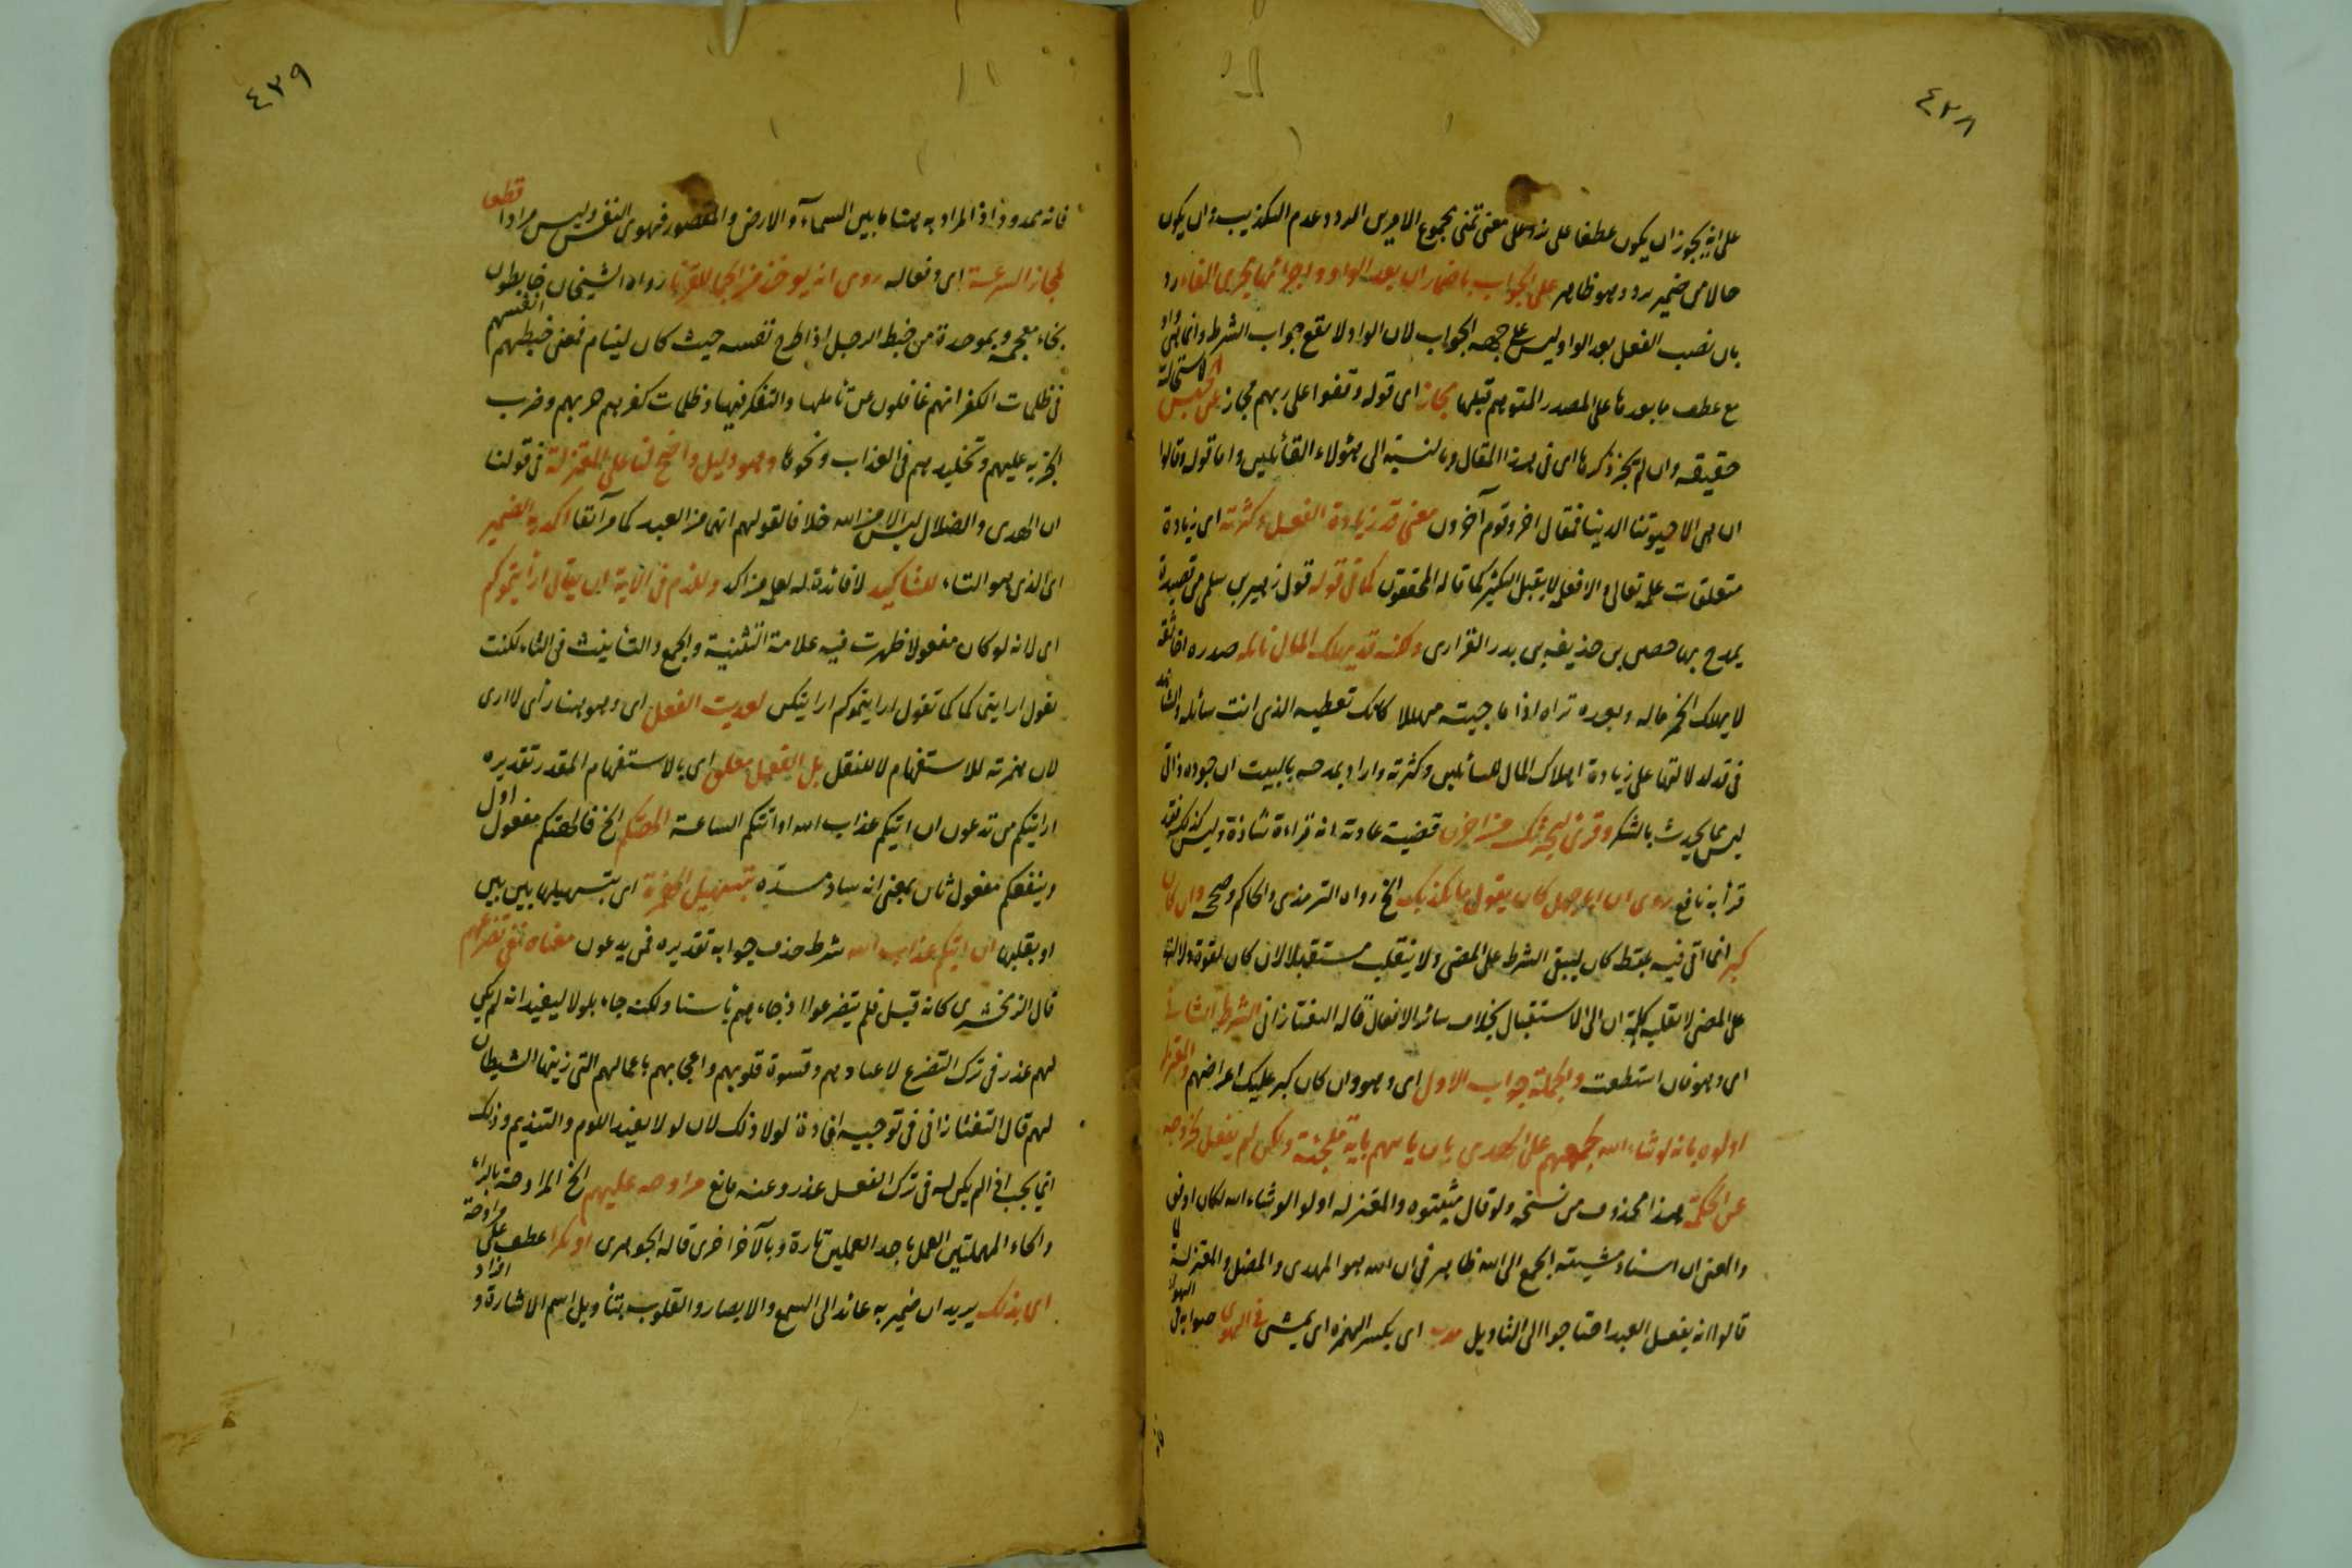 ٤٢٨
على انه يجوز ان يكون عطفا على نرد على معنى تمنى مجموع الامرين الرد وعدم التكذيب وان يكون
حالا من ضمير نرد وهو ظاهر على الجواب باضمار ان بعد الواو واجرائها مجرى الفاء رد
بان نصب الفعل بعد الواو ليس على جهة الجواب لان الواو لا تقع جواب الشرط وانما هى واو
مع عطف ما بعدها على المصدر المتوهم قبلها مجاز اى قوله وقفوا على ربهم مجاز عن الحبس لاستحالة
حقيقه وان لم يجز ذكرها اى فى هذا المقال وبالنسبة الى هؤلاء القائلين واما قوله وقالوا
ان هى الا حيوتنا الدينا فمقال اخر وقوم آخرون معنى قد زيادة الفعل وكثرته اى زيادة
متعلقات علمه تعالى والا فعلمه لا يقبل التكثير كما قاله المحققون كما فى قوله قول زهير بن سلمى من قصيدة
يمدح بها حصن بن حذيفه بن بدر الفزارى ولكنه قد يهلك المال نائله صدره اخا ثقة
لا يهلك الخمر ماله وبعده تراه اذا ما جيته مهللا كانك تعطيه الذى انت سائله والشاهد
فى قد لدلالتها على زيادة اهلاك المال للسائلين وكثرته واراد بمدحه بالبيت ان جوده ذاتى
ليس مما يحدث بالسكر وقرئ ليحزنك من احزن قضية عادته انه قراءة شاذة وليس كذلك فقد
قرأ به نافع روى ان ابا جهل كان يقول ما نكذبك الخ رواه الترمذى والحاكم وصححه وان كان
كبر انما اتى فيه بلفظ كان ليبقى الشرط على المضى ولا ينقلب مستقبلا لان كان لقوة دلالته
على المضى لا تقلبه كلمة ان الى الاستقبال بخلاف سائر الافعال قاله التفتازانى الشرط الثانى
اى وهو فان استطعت والجملة جواب الاول اى وهو وان كان كبر عليك اعراضهم والمعتزلة
اولوه بانه لو شاء الله لجمعهم على الهدى بان ياتيهم باية ملجئة ولكن لم يفعل لخروجه
عن الحكمة هذا محذوف من نسخة ولو قال مثبتوه والمعتزله اولوا لو شاء الله لكان اوفق
والمعنى ان اسناد مشيته الجمع الى الله ظاهر فى ان الله هو المهدى والمضل والمعتزلة لما
قالوا انه بفعل العبد احتاجوا الى التأويل اى بكسر الهمزه اى يمشى فى الهوى صوابه فى الهواء
٤٢٩
فانه ممدود اذ المراد به هنا ما بين السماء والارض والمقصور فهو هوى النفس وليس مرادا قطعا
لمجاز السرعة اى ونحاله روى انه يوخذ من الجما للقرنا رواه الشيخان خابطون
بخاء معجمة وبموحدة من خبط الرجل اذا طرح نفسه حيث كان لينام فمعنى خبطهم انفسهم
فى ظلمات الكفر انهم غافلون عن تأملها والتفكر فيها وظلمات كفرهم هربهم وضرب
الجزيه عليهم وتخليدهم فى العذاب ونحوها وهو دليل واضح لنا على المعتزلة فى قولنا
ان الهدى والضلال ليس الا من الله خلافا لقولهم انهما من العبد كما مر آنفا اكد به الضمير
اى الذى هو التاء للتأكيد لا فائدة له اى من اكد وللزم فى الاية ان يقال ارأيتموكم
اى لانه لو كان مفعولا ظهرت فيه علامة التثنية والجمع والتأنيث فى التاء لكنت
تقول ارايتماكما كما تقول ارايتموكم ارايتكن لعديت الفعل اى وهو هنا رأى لا ارى
لان همزته للاستفهام لا للنقل بل الفعل معلق اى بالاستفهام المقدر تقديره
ارايتكم من تدعون ان اتيكم عذاب الله او اتتكم الساعة الهتكم الخ فالهتكم مفعول اول
وينفعكم مفعول ثان بمعنى انه ساد مسده بتسهيل الهمزة اى بتسهيلها بين بين
او بقلبها ان اتيكم عذاب الله شرط حذف جوابه تقديره فمن يدعون معناه نفى تضرعهم
قال الزمخشرى كانه قيل فلم يتضرعوا اذ جاءهم بأسنا ولكنه جاء بلولا ليفيد انه لم يكن
لهم عذر فى ترك التضرع لا عنادهم وقسوة قلوبهم واعجابهم باعمالهم التى زينها الشيطان
لهم قال التفتازانى فى توجيه افادة لولا ذلك لان لولا يفيد اللوم والتنديم وذلك
انما يحب اذا لم يكن له فى ترك الفعل عذر وعنه مانع مراوحه عليهم الخ المراوحة بالراء
والحاء المهملتين العمل باحد العملين تارة وبالآخر اخرى قاله الجوهرى او مكرا عطف على مراوحة
اى بذلك يريد ان ضمير به عائد الى السمع والابصار والقلوب بتأويل اسم الاشارة و افراد